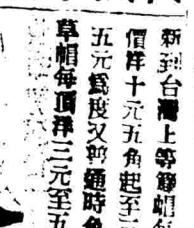 新到台灣上等籐帽每
價洋十元五角起至
五元爲度又 通時
草帽每頂洋三元至五